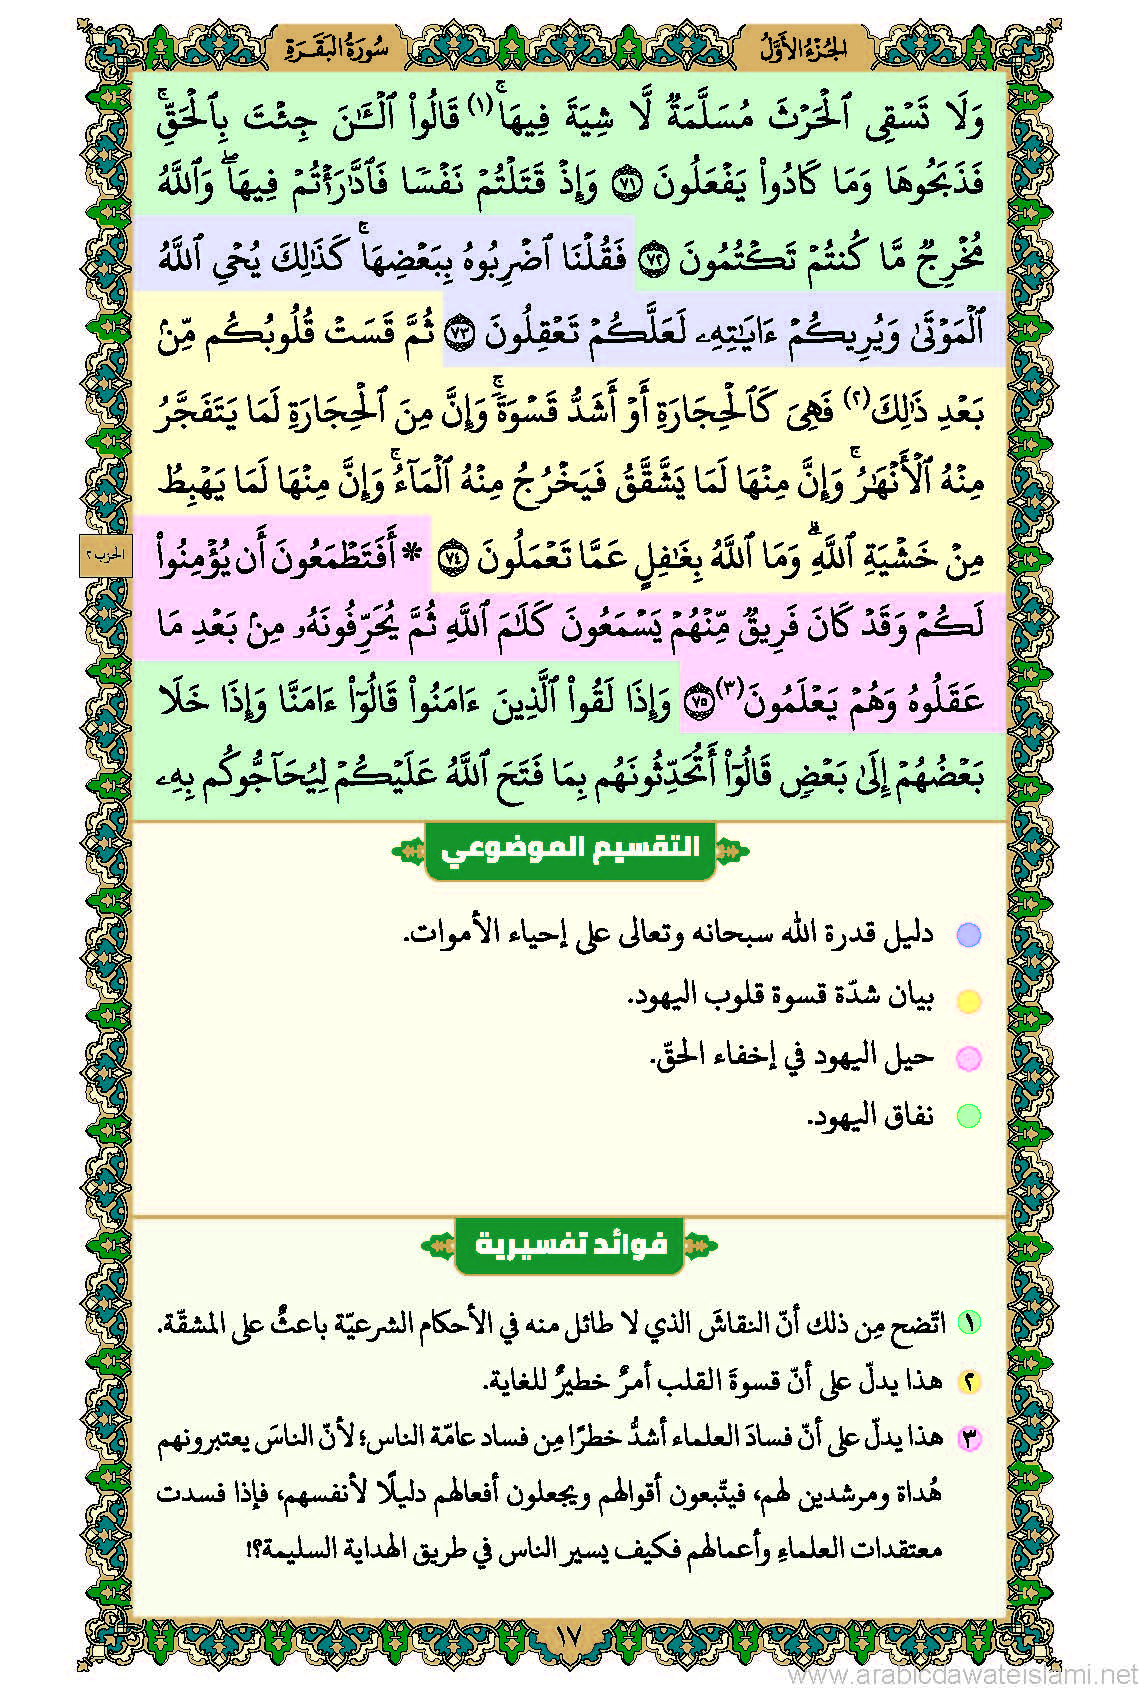 الجُزْءُ الأَوَّلُ
سُورَةُ البَقَرَةِ
وَلَا تَسْقِي ٱلْحَرْثَ مُسَلَّمَةٌ لَّا شِيَةَ فِيهَاۚ (١) قَالُوا۟ ٱلْـَٰٔنَ جِئْتَ بِٱلْحَقِّۚ
فَذَبَحُوهَا وَمَا كَادُوا۟ يَفْعَلُونَ ٧١ وَإِذْ قَتَلْتُمْ نَفْسًا فَٱدَّٰرَْٰٔتُمْ فِيهَاۖ وَٱللَّهُ
مُخْرِجٌ مَّا كُنتُمْ تَكْتُمُونَ ٧٢ فَقُلْنَا ٱضْرِبُوهُ بِبَعْضِهَاۚ كَذَٰلِكَ يُحْىِ ٱللَّهُ
ٱلْمَوْتَىٰ وَيُرِيكُمْ ءَايَٰتِهِۦ لَعَلَّكُمْ تَعْقِلُونَ ٧٣ ثُمَّ قَسَتْ قُلُوبُكُم مِّنۢ
بَعْدِ ذَٰلِكَ (٢) فَهِىَ كَٱلْحِجَارَةِ أَوْ أَشَدُّ قَسْوَةًۚ وَإِنَّ مِنَ ٱلْحِجَارَةِ لَمَا يَتَفَجَّرُ
مِنْهُ ٱلْأَنْهَٰرُۚ وَإِنَّ مِنْهَا لَمَا يَشَّقَّقُ فَيَخْرُجُ مِنْهُ ٱلْمَآءُۚ وَإِنَّ مِنْهَا لَمَا يَهْبِطُ
مِنْ خَشْيَةِ ٱللَّهِۗ وَمَا ٱللَّهُ بِغَٰفِلٍ عَمَّا تَعْمَلُونَ ٧٤ * أَفَتَطْمَعُونَ أَن يُؤْمِنُوا۟
الحزب ٢
لَكُمْ وَقَدْ كَانَ فَرِيقٌ مِّنْهُمْ يَسْمَعُونَ كَلَٰمَ ٱللَّهِ ثُمَّ يُحَرِّفُونَهُۥ مِنۢ بَعْدِ مَا
عَقَلُوهُ وَهُمْ يَعْلَمُونَ (٣) ٧٥ وَإِذَا لَقُوا۟ ٱلَّذِينَ ءَامَنُوا۟ قَالُوٓا۟ ءَامَنَّا وَإِذَا خَلَا
بَعْضُهُمْ إِلَىٰ بَعْضٍ قَالُوٓا۟ أَتُحَدِّثُونَهُم بِمَا فَتَحَ ٱللَّهُ عَلَيْكُمْ لِيُحَآجُّوكُم بِهِۦ
التقسيم الموضوعي
دليل قدرة الله سبحانه وتعالى على إحياء الأموات.
بيان شدّة قسوة قلوب اليهود.
حيل اليهود في إخفاء الحقّ.
نفاق اليهود.
فوائد تفسيرية
١ اتّضح مِن ذلك أنّ النقاشَ الذي لا طائل منه في الأحكام الشرعيّة باعثٌ على المشقّة.
٢ هذا يدلّ على أنّ قسوةَ القلب أمرٌ خطيرٌ للغاية.
٣ هذا يدلّ على أنّ فسادَ العلماء أشدُّ خطرًا مِن فساد عامّة الناس؛ لأنّ الناسَ يعتبرونهم
هُداة ومرشدين لهم، فيتّبعون أقوالهم ويجعلون أفعالهم دليلًا لأنفسهم، فإذا فسدت
معتقدات العلماءِ وأعمالهم فكيف يسير الناس في طريق الهداية السليمة؟!
١٧
www.arabicdawateislami.net